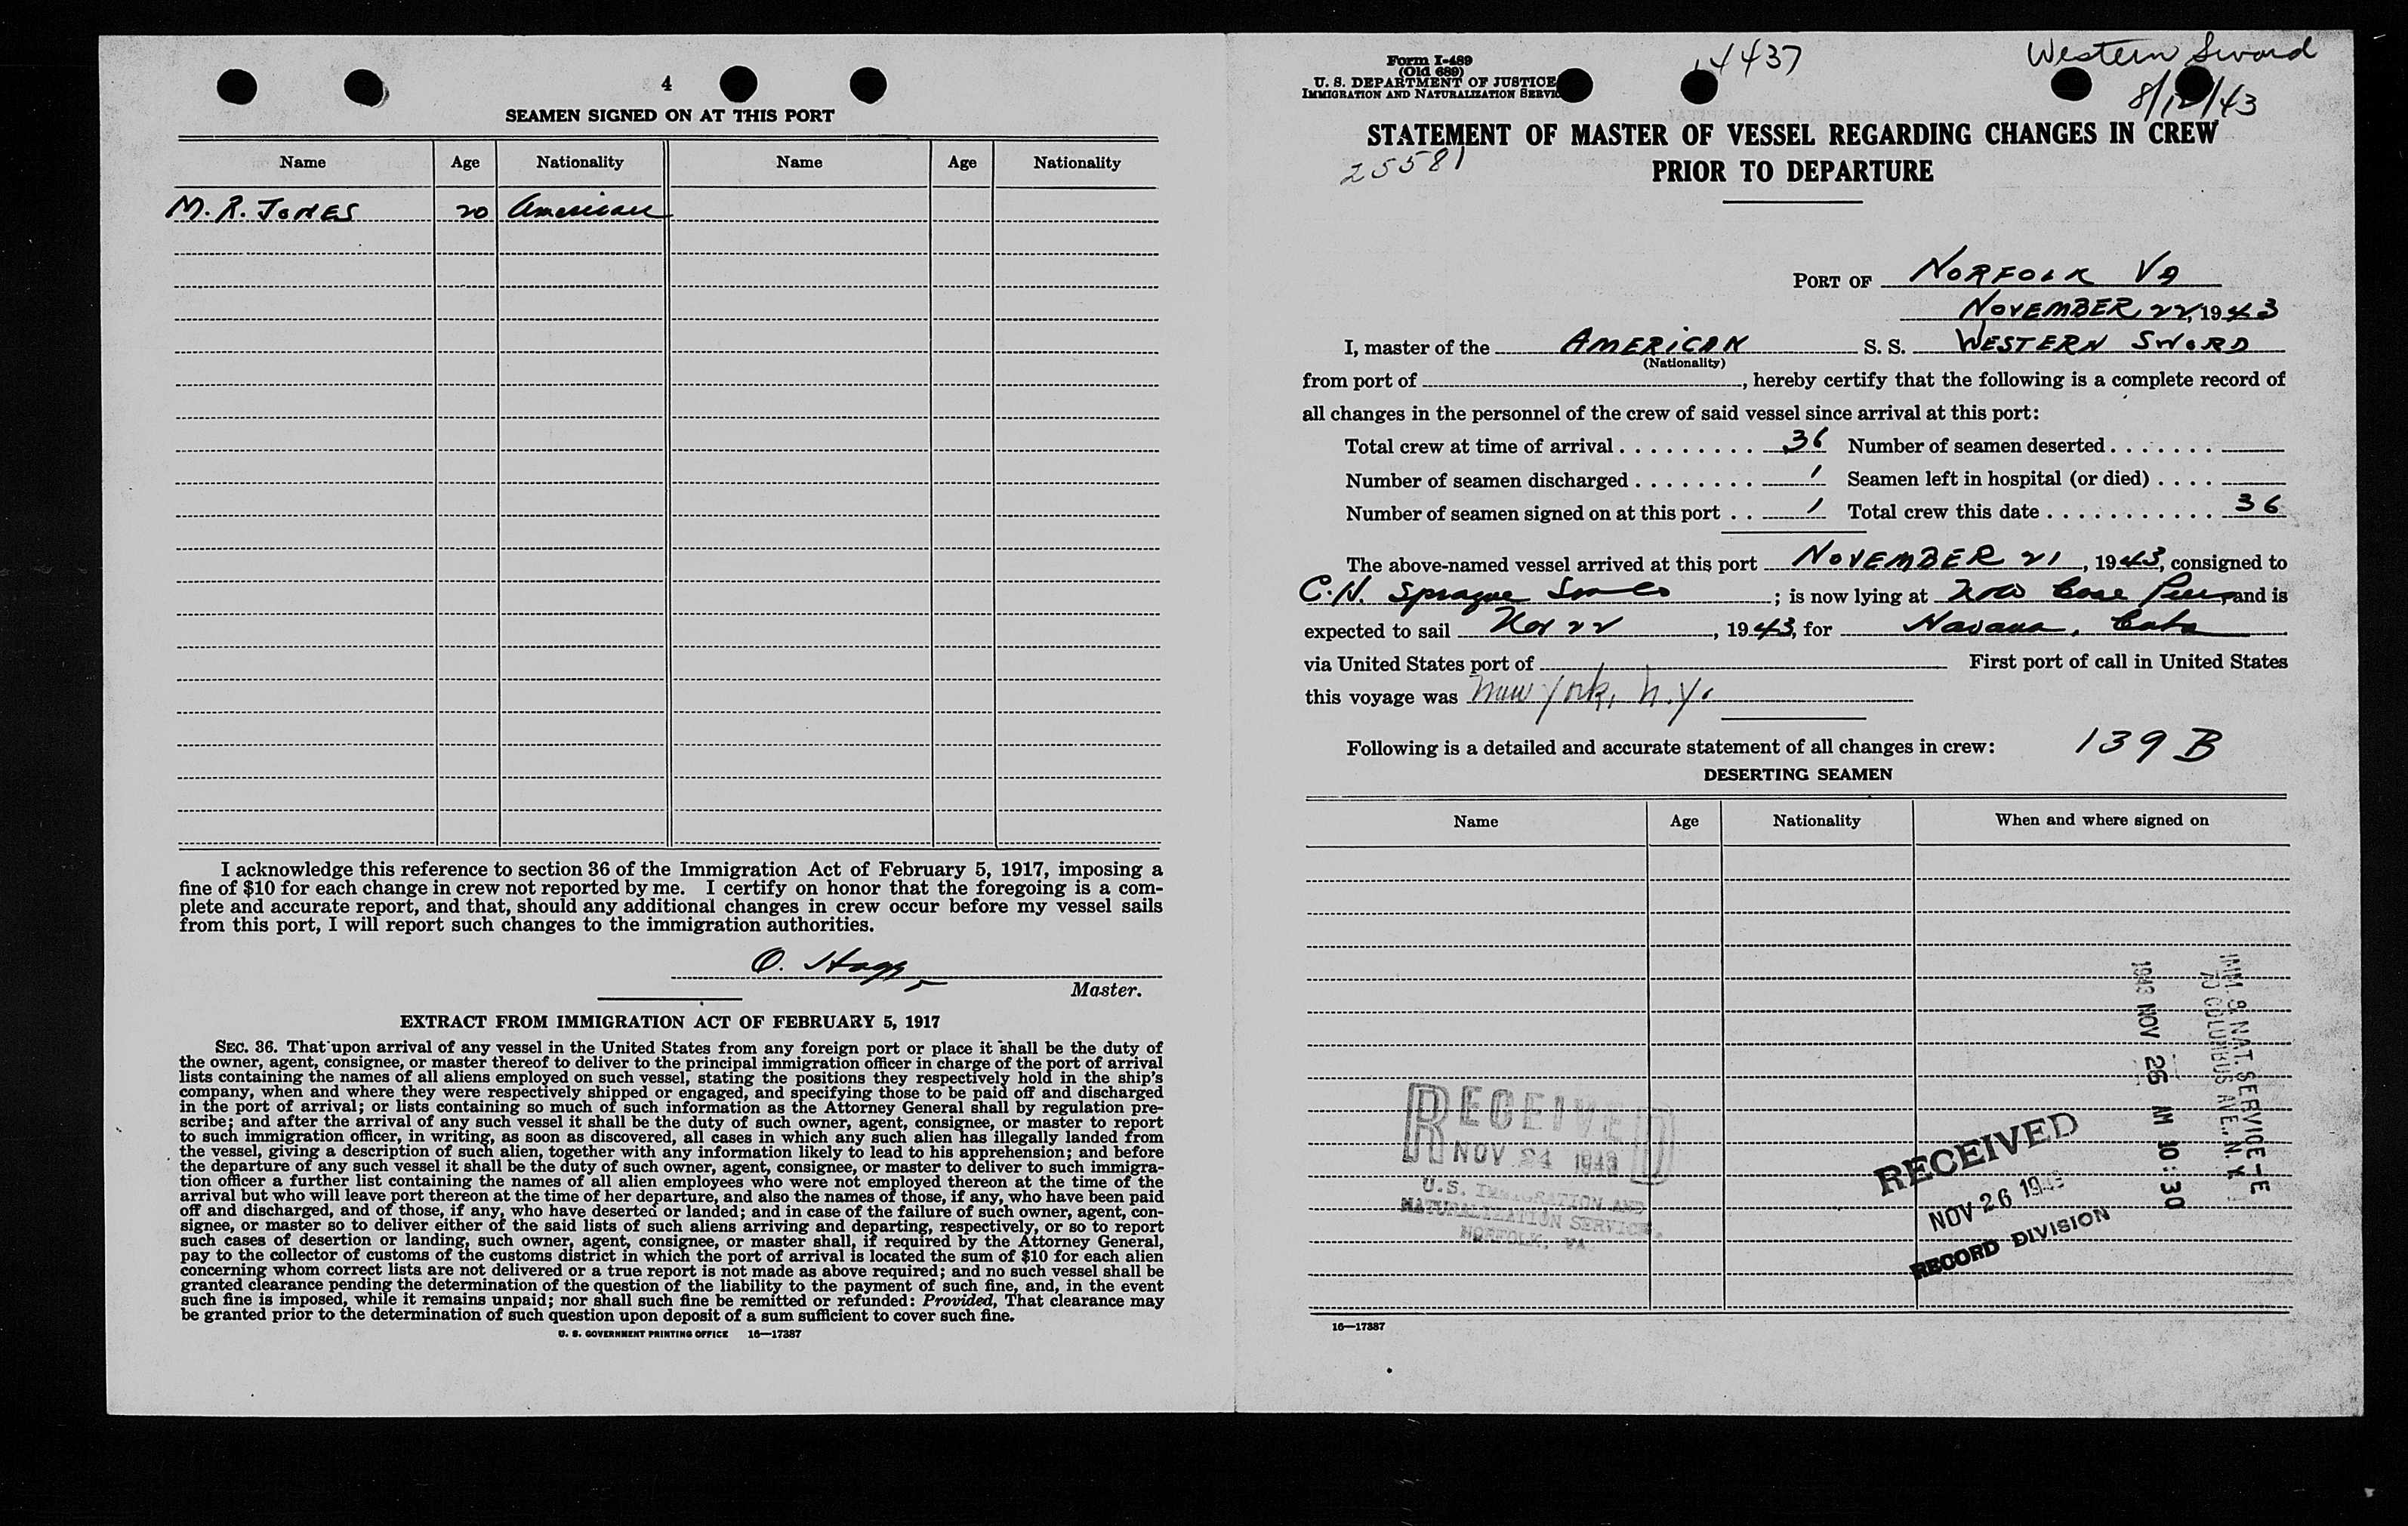 4
SEAMEN SIGNED ON AT THIS PORT
Name Age Nationality Name Age Nationality
M. R. JONES 20 American
I acknowledge this reference to section 36 of the Immigration Act of February 5, 1917, imposing a
fine of $10 for each change in crew not reported by me. I certify on honor that the foregoing is a com-
plete and accurate report, and that, should any additional changes in crew occur before my vessel sails
from this port, I will report such changes to the immigration authorities.
O.
Master.
EXTRACT FROM IMMIGRATION ACT OF FEBRUARY 5, 1917
SEC. 36. That upon arrival of any vessel in the United States from any foreign port or place it shall be the duty of
the owner, agent, consignee, or master thereof to deliver to the principal immigration officer in charge of the port of arrival
lists containing the names of all aliens employed on such vessel, stating the positions they respectively hold in the ship's
company, when and where they were respectively shipped or engaged, and specifying those to be paid off and discharged
in the port of arrival; or lists containing so much of such information as the Attorney General shall by regulation pre-
scribe; and after the arrival of any such vessel it shall be the duty of such owner, agent, consignee, or master to report
to such immigration officer, in writing, as soon as discovered, all cases in which any such alien has illegally landed from
the vessel, giving a description of such alien, together with any information likely to lead to his apprehension; and before
the departure of any such vessel it shall be the duty of such owner, agent, consignee, or master to deliver to such immigra-
tion officer a further list containing the names of all alien employees who were not employed thereon at the time of the
arrival but who will leave port thereon at the time of her departure, and also the names of those, if any, who have been paid
off and discharged, and of those, if any, who have deserted or landed; and in case of the failure of such owner, agent, con-
signee, or master so to deliver either of the said lists of such aliens arriving and departing, respectively, or so to report
such cases of desertion or landing, such owner, agent, consignee, or master shall, if required by the Attorney General,
pay to the collector of customs of the customs district in which the port of arrival is located the sum of $10 for each alien
concerning whom correct lists are not delivered or a true report is not made as above required; and no such vessel shall be
granted clearance pending the determination of the question of the liability to the payment of such fine, and, in the event
such fine is imposed, while it remains unpaid; nor shall such fine be remitted or refunded: Provided, That clearance may
be granted prior to the determination of such question upon deposit of a sum sufficient to cover such fine.
U. S. GOVERNMENT PRINTING OFFICE 16—17387
Form I-489
(Old 689)
U. S. DEPARTMENT OF JUSTICE
IMMIGRATION AND NATURALIZATION SERVICE
4437
Western Sword
8/12/43
STATEMENT OF MASTER OF VESSEL REGARDING CHANGES IN CREW
PRIOR TO DEPARTURE
25581
PORT OF NORFOLK VA
NOVEMBER 22, 1943
I, master of the AMERICAN S. S. WESTERN SWORD
(Nationality)
from port of , hereby certify that the following is a complete record of
all changes in the personnel of the crew of said vessel since arrival at this port:
Total crew at time of arrival 36 Number of seamen deserted
Number of seamen discharged 1 Seamen left in hospital (or died)
Number of seamen signed on at this port 1 Total crew this date 36
The above-named vessel arrived at this port NOVEMBER 21, 1943, consigned to
C. H. Sprague ; is now lying at , and is
expected to sail Nov 22, 1943, for Havana, Cuba
via United States port of First port of call in United States
this voyage was New York, N.Y.
Following is a detailed and accurate statement of all changes in crew: 139 B
DESERTING SEAMEN
Name Age Nationality When and where signed on
RECEIVED
NOV 24 1943
U.S. IMMIGRATION AND
NATURALIZATION SERVICE.
NORFOLK, VA.
RECEIVED
NOV 26 1943
RECORD DIVISION
IMM. & NAT. SERVICE
70 COLUMBUS AVE. N.Y.
1943 NOV 26 AM 10:30
16—17387